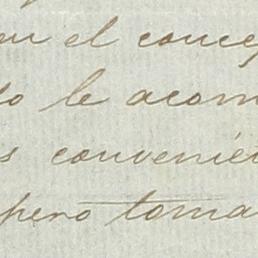 en el conce
do le acom
s convenié
pero toma